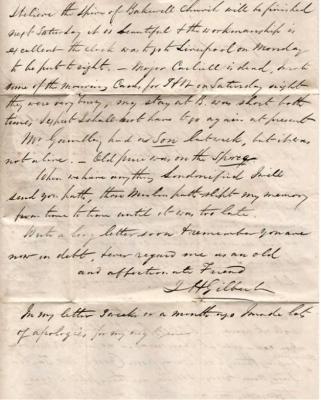 I believe the Spire of Bakewell Church will be finished
next Saturday it is beautiful & the workmanship is
excellent the clock was to Liverpool on Monday
to be put to right. — Major Carlill is dead,
some of the mourning Cards, for on Saturday night
they were very busy, my stay at B. was short both
times, I expect I shall not have to go again at present
Mr. Grindley had a Son last week, but it was
not alive. — Old was on the Spree
When we have anything I will
send you, the Muslin slipt my memory
from time to time until it was too late.
Write a long letter soon & remember you are
now in debt, ever regard me as an old
and affectionate Friend
J H Gilbert
In my letter 3 weeks or a month ago I made lots
of apologies, for my